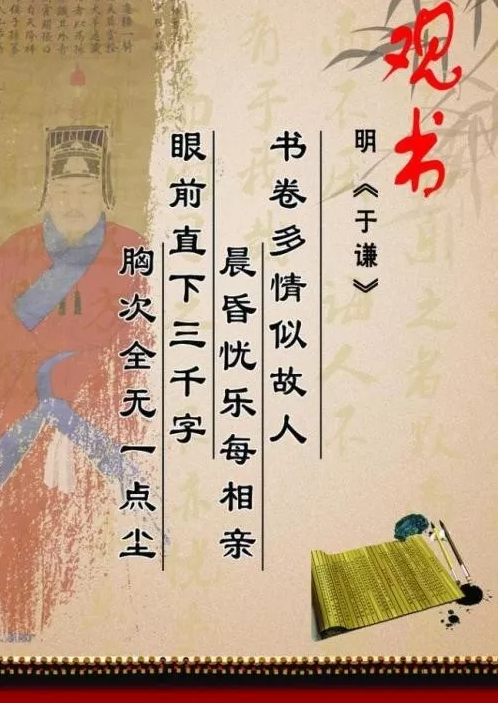 观书
明《于谦》
书卷多情似故人
晨昏忧乐每相亲
眼前直下三千字
胸次全无一点尘